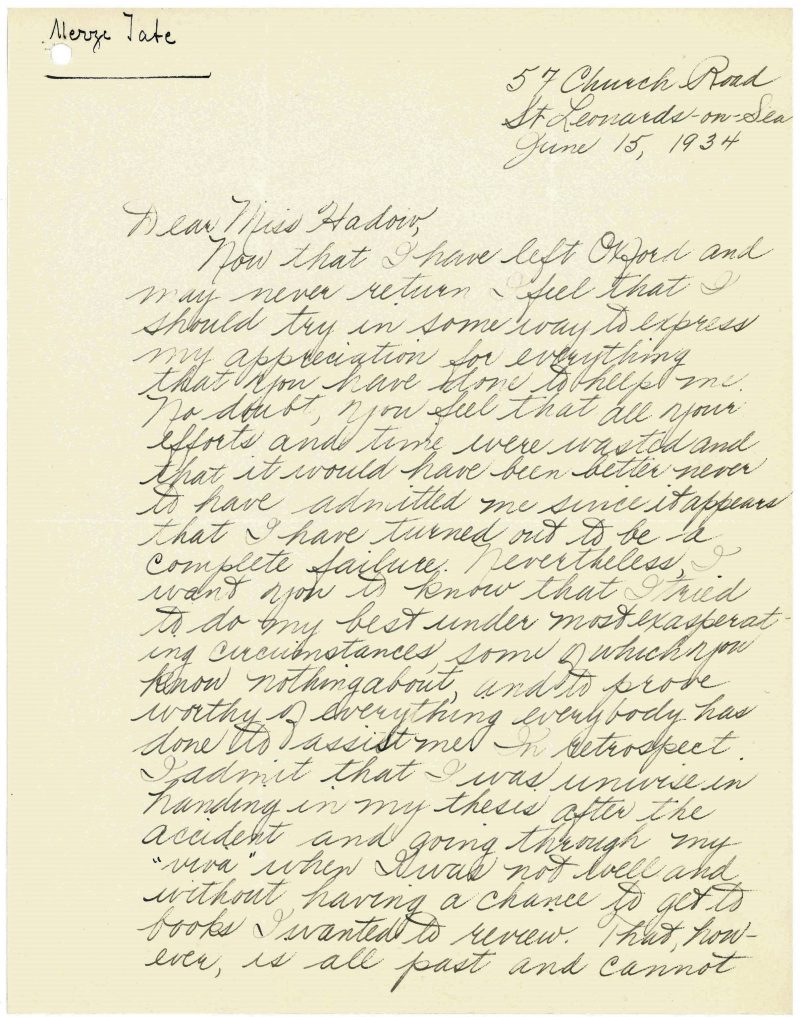 Merze Tate
57 Church Road
St Leonards-on-Sea
June 15, 1934
Dear Miss Hadow,
Now that I have left Oxford and
may never return I feel that I
should try in some way to express
my appreciation for everything
that you have done to help me.
No doubt, you feel that all your
efforts and time were wasted and
that it would have been better never
to have admitted me since it appears
that I have turned out to be a
complete failure. Nevertheless, I
want you to know that I tried
to do my best under most exasperat-
ing circumstances some of which you
know nothing about, and to prove
worthy of everything everybody has
done to assist me. In retrospect
I admit that I was unwise in
handing in my thesis after the
accident and going through my
"viva" when I was not well and
without having a chance to get to
books I wanted to review. That, how-
ever, is all past and cannot